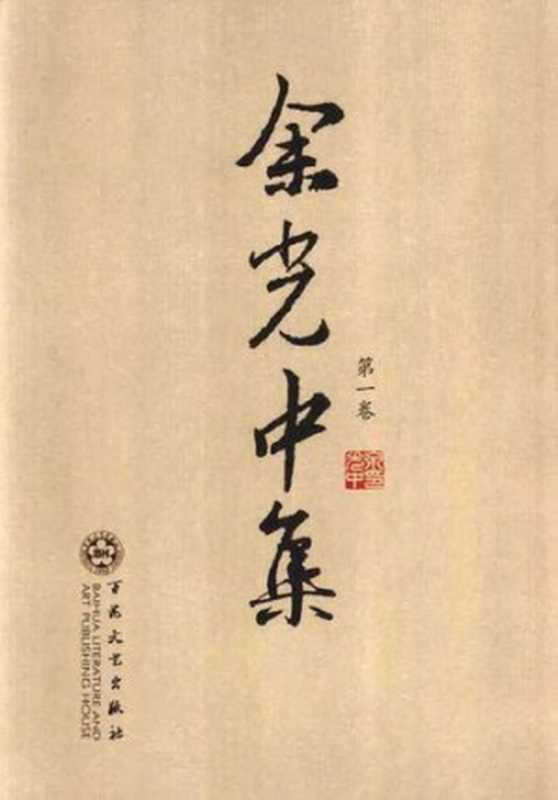 余光中集
第一卷
百花文艺出版社
BAIHUA LITERATURE AND
ART PUBLISHING HOUSE
BH